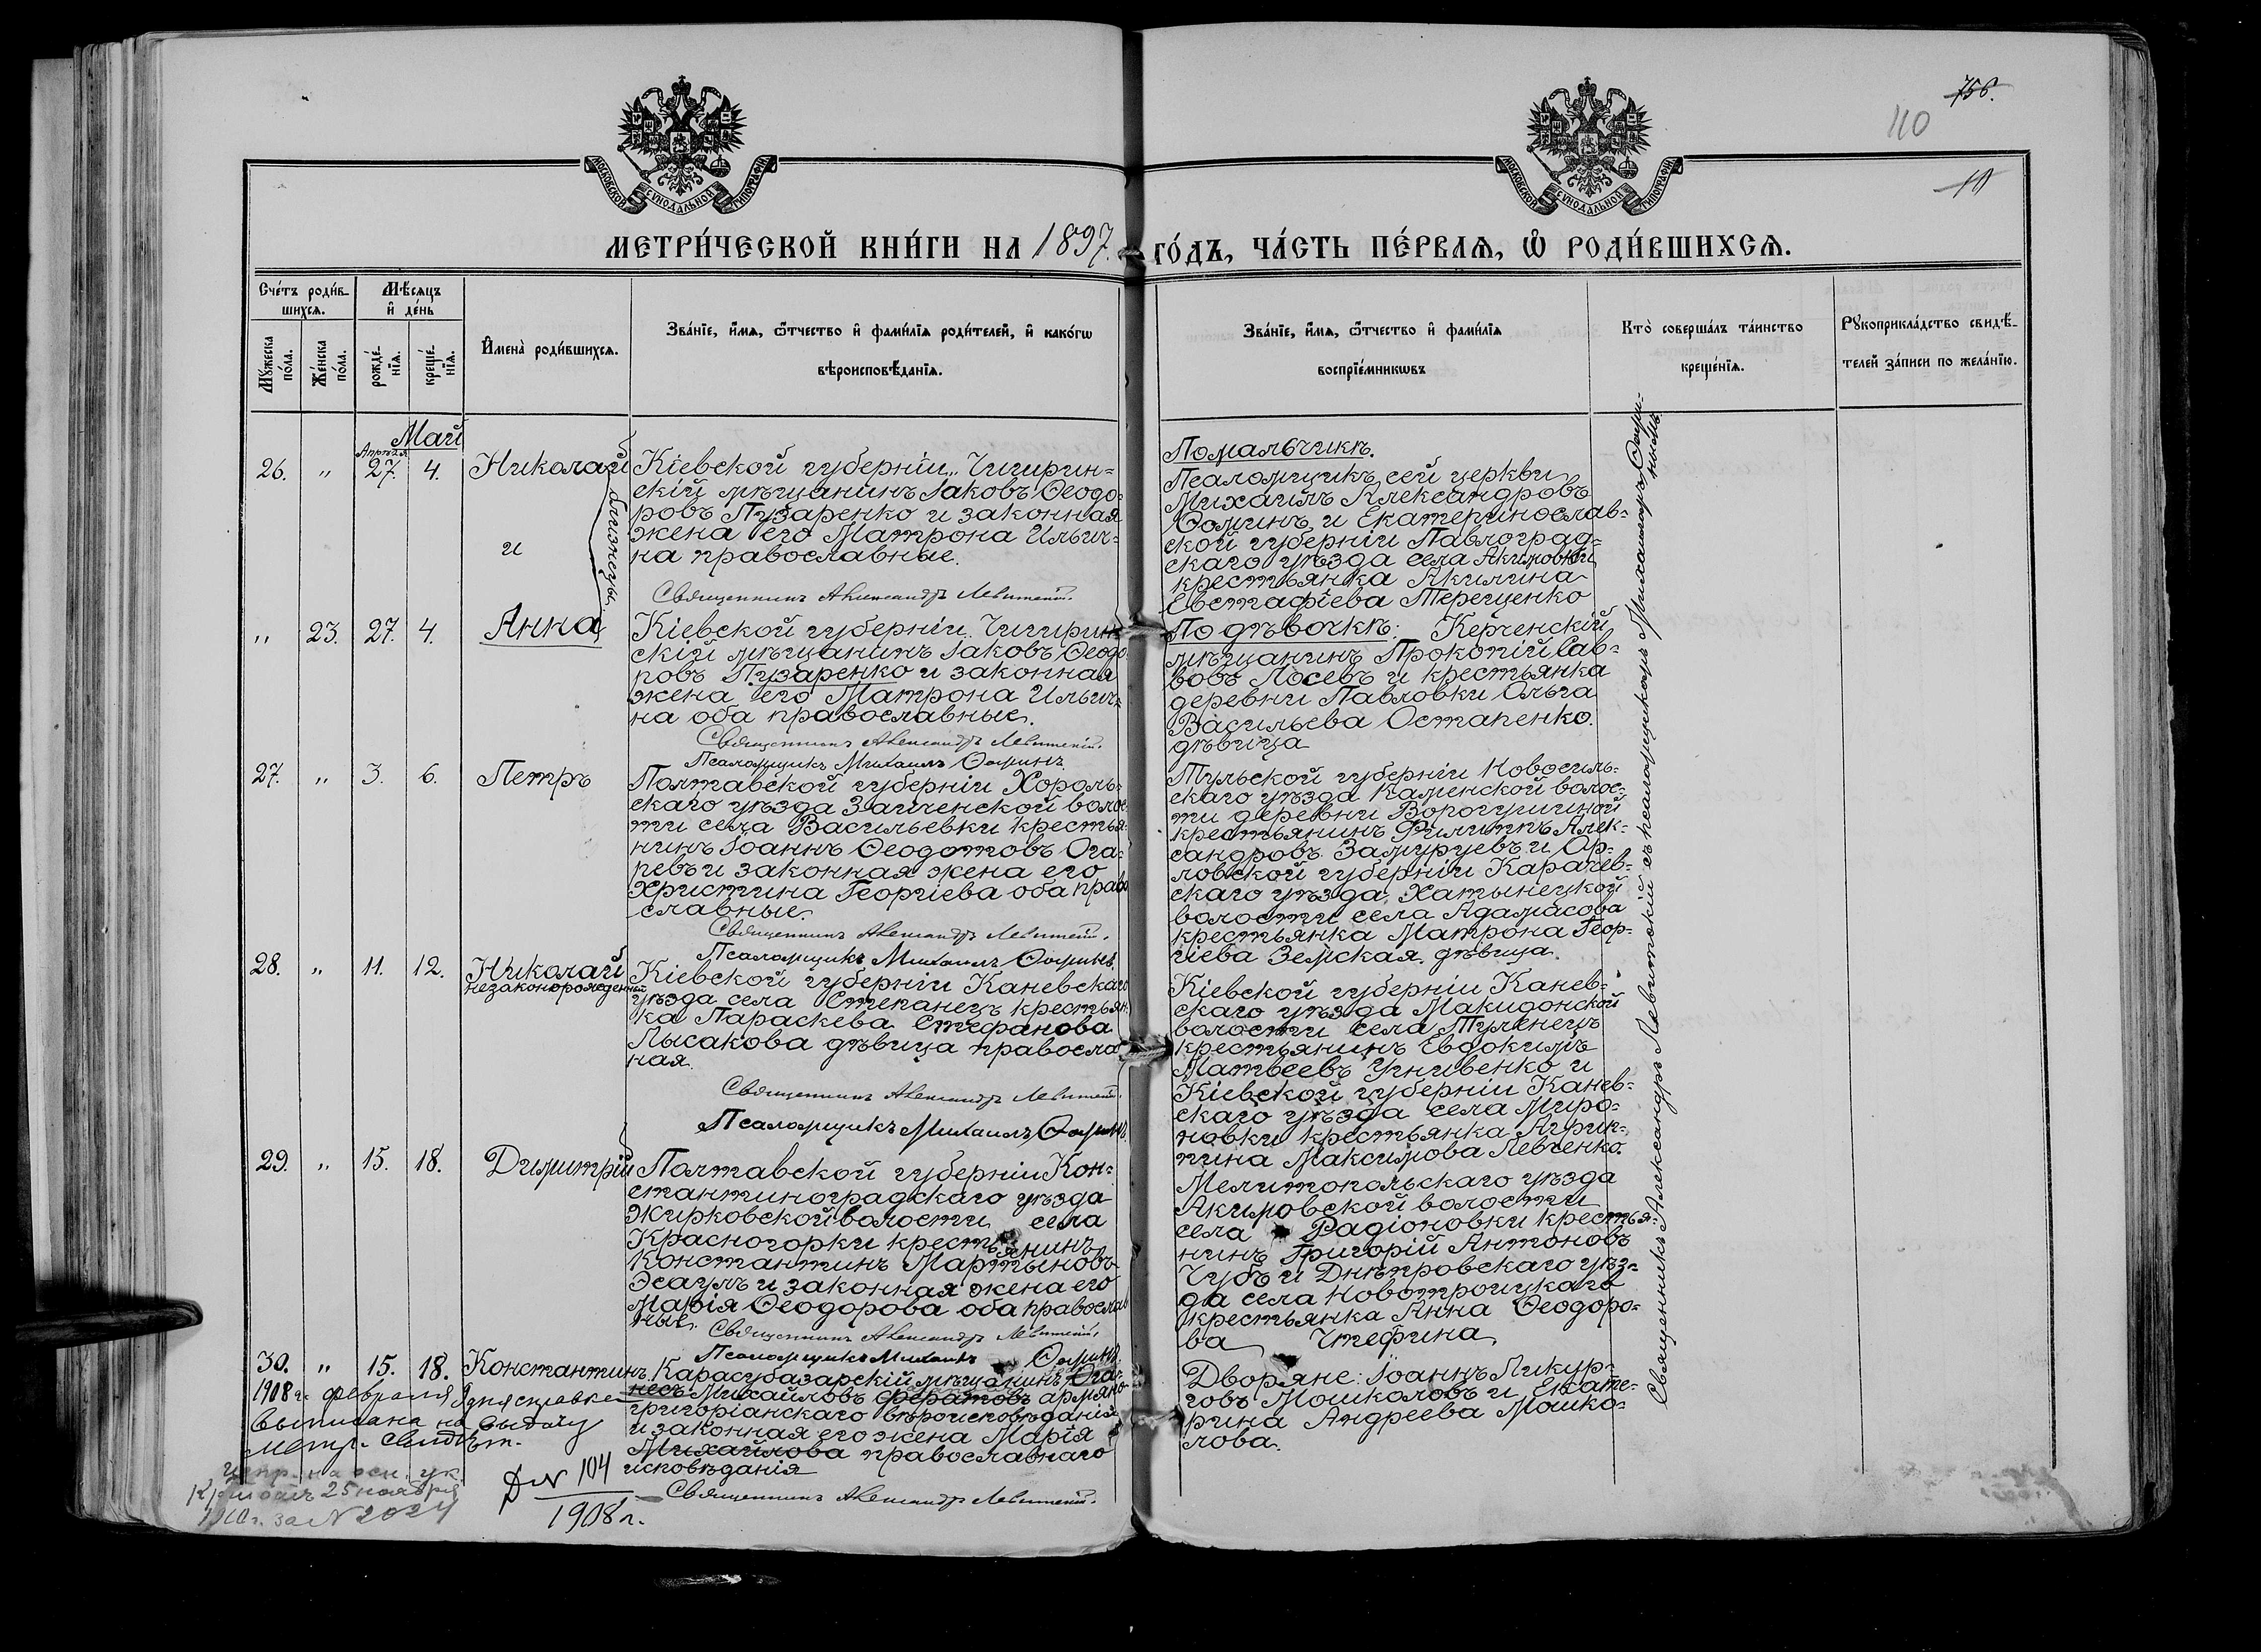 756.
110
10
МОСКОВСКОЙ СѴНОДАЛЬНОЙ ТИПОГРАФІИ
МОСКОВСКОЙ СѴНОДАЛЬНОЙ ТИПОГРАФІИ
МЕТРИ́ЧЕСКОЙ КНИ́ГИ НА 1897. ГО́ДЪ, ЧА́СТЬ ПЕ́РВАѦ, Ѡ҆ РОДИ́ВШИХСѦ.
Сче́тъ роди́в-
шихсѧ.
Мѣ́сѧцъ
и҆ де́нь
Мꙋ́жеска по́ла.
Же́нска по́ла.
рожде́-
нїѧ.
креще́-
нїѧ.
И҆мена̀ роди́вшихсѧ.
Зва́нїе, и҆́мѧ, ѻ҆́тчество и҆ фами́лїѧ роди́телей, и҆ како́гѡ
вѣроисповѣ́данїѧ.
Зва́нїе, и҆́мѧ, ѻ҆́тчество и҆ фами́лїѧ
воспрїе́мникѡвъ
Кто̀ соверша́лъ та́инство
креще́нїѧ.
Рꙋкоприкла́дство свидѣ́-
телей за́писи по жела́нїю.
Май
Апрѣля
26. " 27. 4. Николай
и
близнецы
Кіевской губерніи, Чигирин-
скій мѣщанинъ Іаковъ Ѳеодо-
ровъ Пузаренко и законная
жена его Матрона Ильич-
на православные.
Священникъ Александръ Левитскій.
По мальчикѣ.
Псаломщикъ сей церкви
Михаилъ Александровъ
Ѳоминъ и Екатеринослав-
ской губерніи Павлоград-
скаго уѣзда села Акимовки
крестьянка Акилина
Евстафіева Терещенко
" 23. 27. 4. Анна
Кіевской губерніи Чигирин-
скій мѣщанинъ Іаковъ Ѳеодо-
ровъ Пузаренко и законная
жена его Матрона Ильич-
на оба православные.
Священникъ Александръ Левитскій.
Псаломщикъ Михаилъ Ѳоминъ.
По дѣвочкѣ: Керченскій
мѣщанинъ Прокопій Сав-
вовъ Лосевъ и крестьянка
деревни Павловки Ольга
Васильева Остапенко.
дѣвица
27. " 3. 6. Петръ
Полтавской губерніи Хороль-
скаго уѣзда Зайченской волос-
ти села Васильевки крестья-
нинъ Іоаннъ Ѳеодотовъ Ога-
ревъ и законная жена его
Христина Георгіева оба право-
славные.
Священникъ Александръ Левитскій.
Псаломщикъ Михаилъ Ѳоминъ.
Тульской губерніи Новосиль-
скаго уѣзда Каменской волос-
ти деревни Ворогушиной
крестьянинъ Филиппъ Алек-
сандровъ Замуруевъ и Ор-
ловской губерніи Карачев-
скаго уѣзда, Хатынецкой
волости села Адамасова
крестьянка Матрона Геор-
гіева Земская. дѣвица.
28. " 11. 12. Николай
незаконорожденный
Кіевской губерніи Каневскаго
уѣзда села Степанецъ крестьян-
ка Параскева Стефанова
Лысакова дѣвица православ-
ная.
Священникъ Александръ Левитскій.
Псаломщикъ Михаилъ Ѳоминъ.
Кіевской губерніи Канев-
скаго уѣзда Макидонской
волости села Тулинецъ
крестьянинъ Евдокимъ
Матвеевъ Угнивенко и
Кіевской губерніи Канев-
скаго уѣзда села Миро-
новки крестьянка Агрип-
пина Максимова Левченко.
29. " 15. 18. Димитрій
Полтавской губерніи Кон-
стантиноградскаго уѣзда
Жирковской волости села
Красногорки крестьянинъ
Константинъ Мартыновъ
Эсаулъ и законная жена его
Марія Ѳеодорова оба православ-
ные.
Священникъ Александръ Левитскій.
Псаломщикъ Михаилъ Ѳоминъ.
Мелитопольскаго уѣзда
Акимовской волости
села Радіоновки крестья-
нинъ Григорій Антоновъ
Чубъ и Днѣпровскаго уѣз-
да села Новотроицкаго
крестьянка Анна Ѳеодоро-
ва Чтефина
30. " 15. 18. Константинъ.
Карасубазарскій мѣщанинъ Ога-
несъ Михайловъ Сфератовъ армяно-
григоріанскаго вѣроисповѣданія
и законная его жена Марія
Михайлова православнаго
исповѣданія
Священникъ Александръ Левитскій.
Дворяне: Іоаннъ Ликур-
говъ Мошколовъ и Екате-
рина Андреева Мошко-
лова.
Священникъ Александръ Левитскій съ псаломщикомъ Михаиломъ Ѳоми-
нымъ.
1908 г. февраля 9 дня справка
выписана на выдачу
метр. свидѣт.
25 ноября
за № 2024
Д № 104
1908 г.